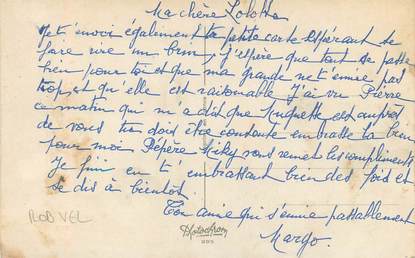 Ma chère Lolotte
Je t'envoi également la petite carte espérant de
faire rire un brin, j'espère que tout se passe
bien pour toi et que ma grande ne t'ennuie pas
trop, et qu'elle est raisonable J'ai vu Pierre
ce matin qui m'a dit que Huguette est auprès
de vous tu dois être contente embrasse la bien
pour moi Pépère Miky vous remet les compliments
Je fini en t'embrassant bien des fois et
te dis à bientot.
Ton amie qui s'ennuie passablement
Margo.
ROB VEL
Photochrom